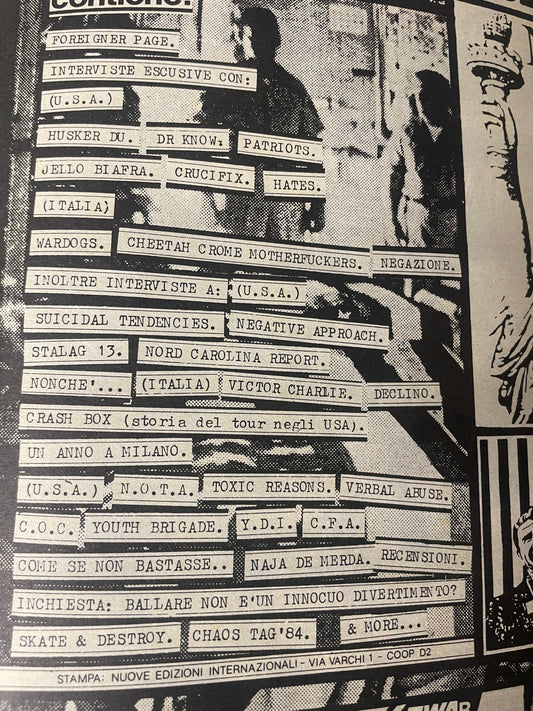 contiene:
FOREIGNER PAGE.
INTERVISTE ESCUSIVE CON:
(U.S.A.)
HUSKER DU. DR KNOW. PATRIOTS.
JELLO BIAFRA. CRUCIFIX. HATES.
(ITALIA)
WARDOGS. CHEETAH CROME MOTHERFUCKERS. NEGAZIONE.
INOLTRE INTERVISTE A: (U.S.A.)
SUICIDAL TENDENCIES. NEGATIVE APPROACH.
STALAG 13. NORD CAROLINA REPORT.
NONCHE'... (ITALIA) VICTOR CHARLIE. DECLINO.
CRASH BOX (storia del tour negli USA).
UN ANNO A MILANO.
(U.S.A.) N.O.T.A. TOXIC REASONS. VERBAL ABUSE.
C.O.C. YOUTH BRIGADE. Y.D.I. C.F.A.
COME SE NON BASTASSE.. NAJA DE MERDA. RECENSIONI.
INCHIESTA: BALLARE NON E'UN INNOCUO DIVERTIMENTO?
SKATE & DESTROY. CHAOS TAG'84. & MORE...
STAMPA: NUOVE EDIZIONI INTERNAZIONALI - VIA VARCHI 1 - COOP D2